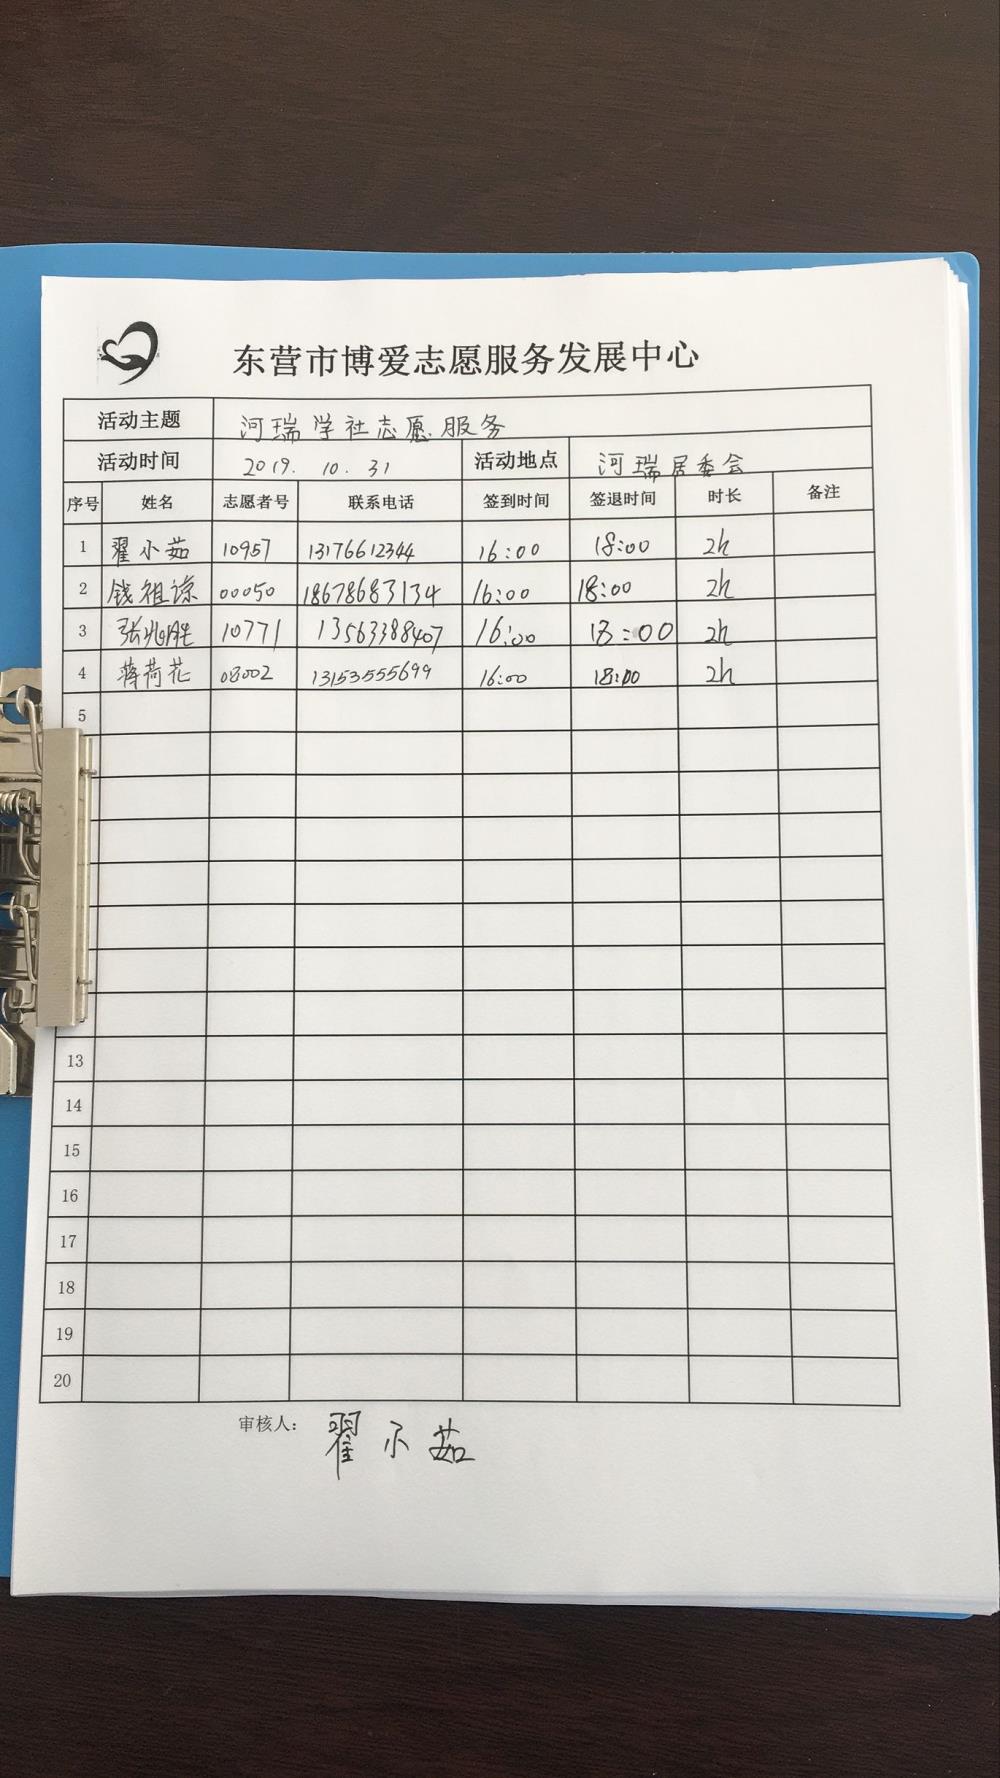 东营市博爱志愿服务发展中心
活动主题 河瑞学社志愿服务
活动时间 2019.10.31 活动地点 河瑞居委会
序号 姓名 志愿者号 联系电话 签到时间 签退时间 时长 备注
1 翟小茹 10957 13176612344 16:00 18:00 2h
2 钱祖谅 00050 18678683134 16:00 18:00 2h
3 张兆胜 10771 13563388407 16:00 18:00 2h
4 蒋荷花 08002 13153555699 16:00 18:00 2h
5
13
14
15
16
17
18
19
20
审核人: 翟小茹